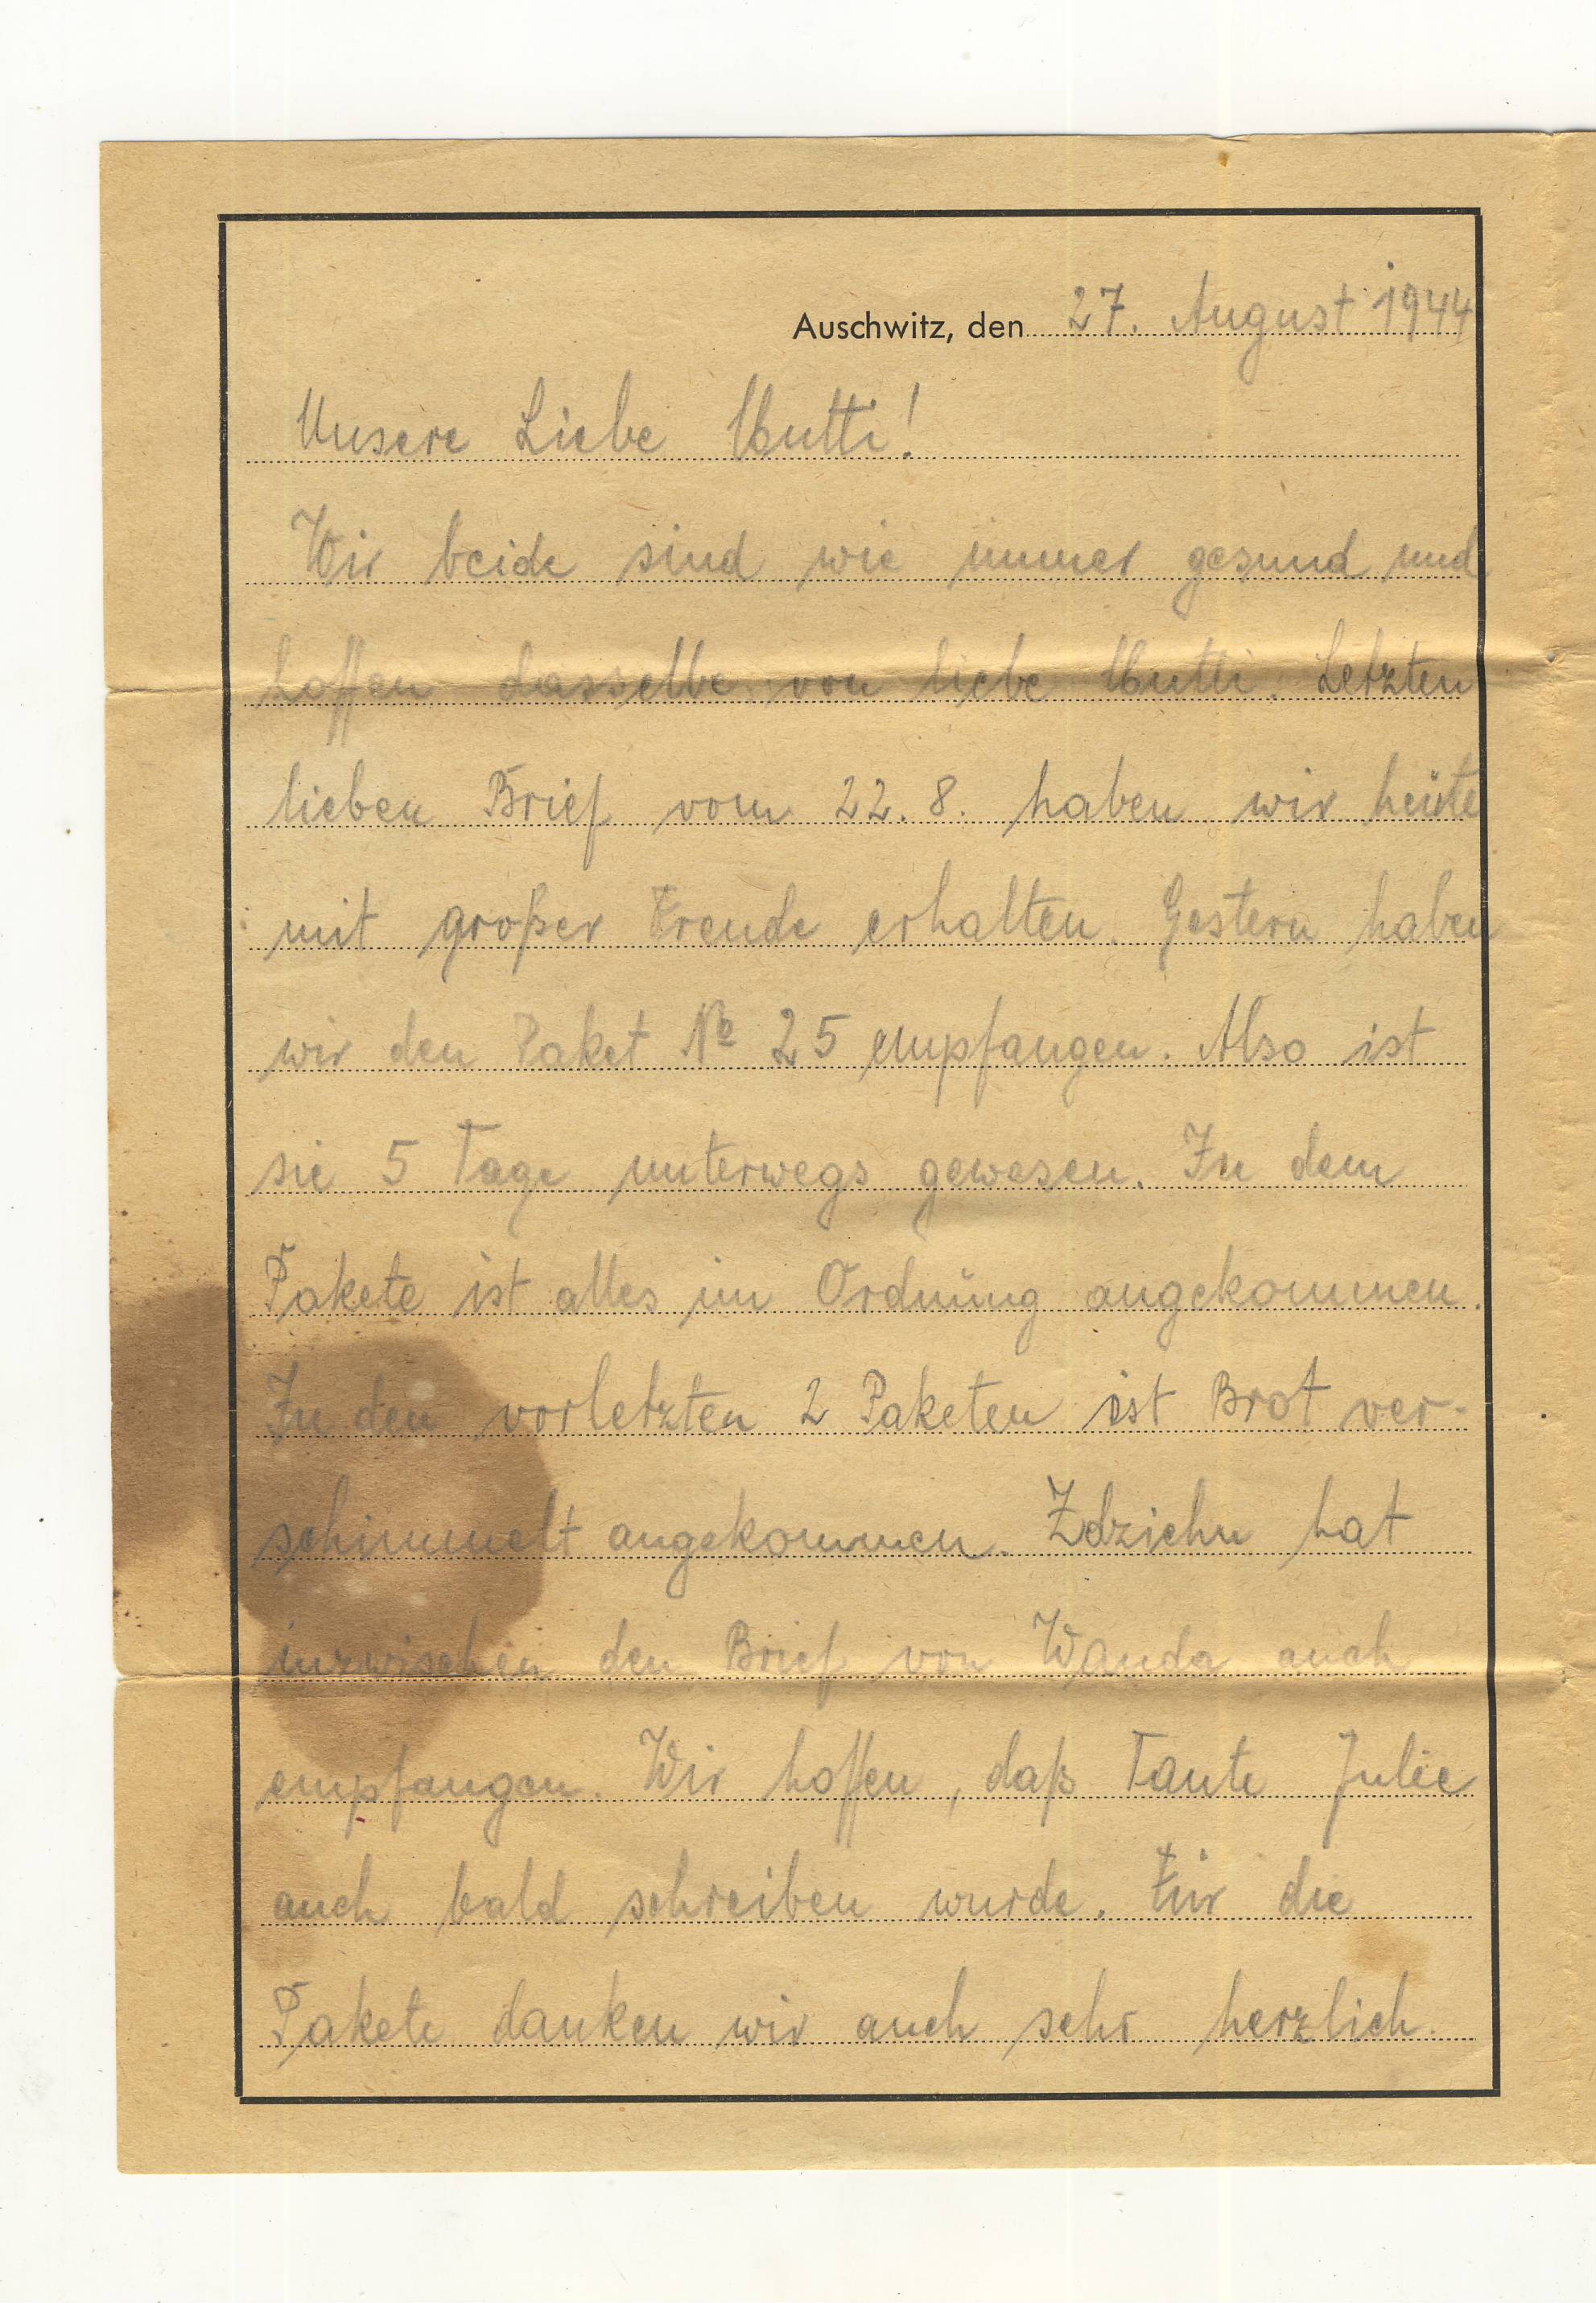 Auschwitz, den 27. August 1944
Unsere Liebe Mutti!
Wir beide sind wie immer gesund und
hoffen dasselbe von liebe Mutti. Letzten
lieben Brief vom 22. 8. haben wir heute
mit großer Freude erhalten. Gestern haben
wir den Paket № 25 empfangen. Also ist
sie 5 Tage unterwegs gewesen. In dem
Pakete ist alles in Ordnung angekommen.
In den vorletzten 2 Paketen ist Brot ver-
schimmelt angekommen. Zdzichu hat
inzwischen den Brief von Wanda auch
empfangen. Wir hoffen, daß Tante Julie
auch bald schreiben wurde. Für die
Pakete danken wir auch sehr herzlich.